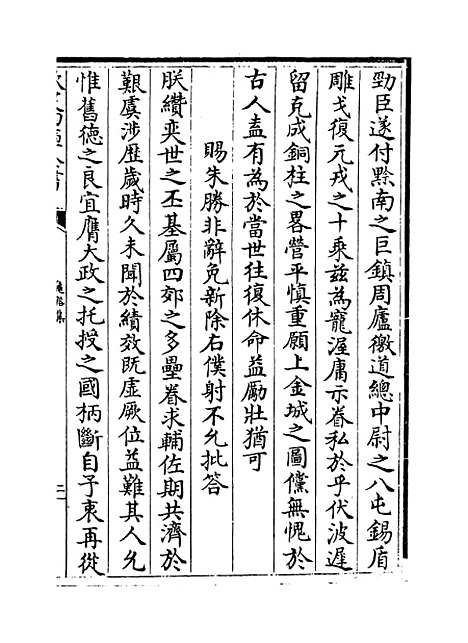 勁臣遂付黔南之巨鎮周廬徼道總中尉之八屯錫盾
雕戈復元戎之十乘兹為寵渥庸示眷私於乎伏波遲
留克成銅柱之畧營平慎重願上金城之圖儻無愧於
古人盍有為於當世往復休命益勵壯猶可
賜朱勝非辭免新除右僕射不允批答
朕纘奕世之丕基屬四郊之多壘眷求輔佐期共濟於
艱虞涉歴歲時久未聞於績效既虛厥位益難其人允
惟舊德之良宜膺大政之托授之國柄斷自予衷再從